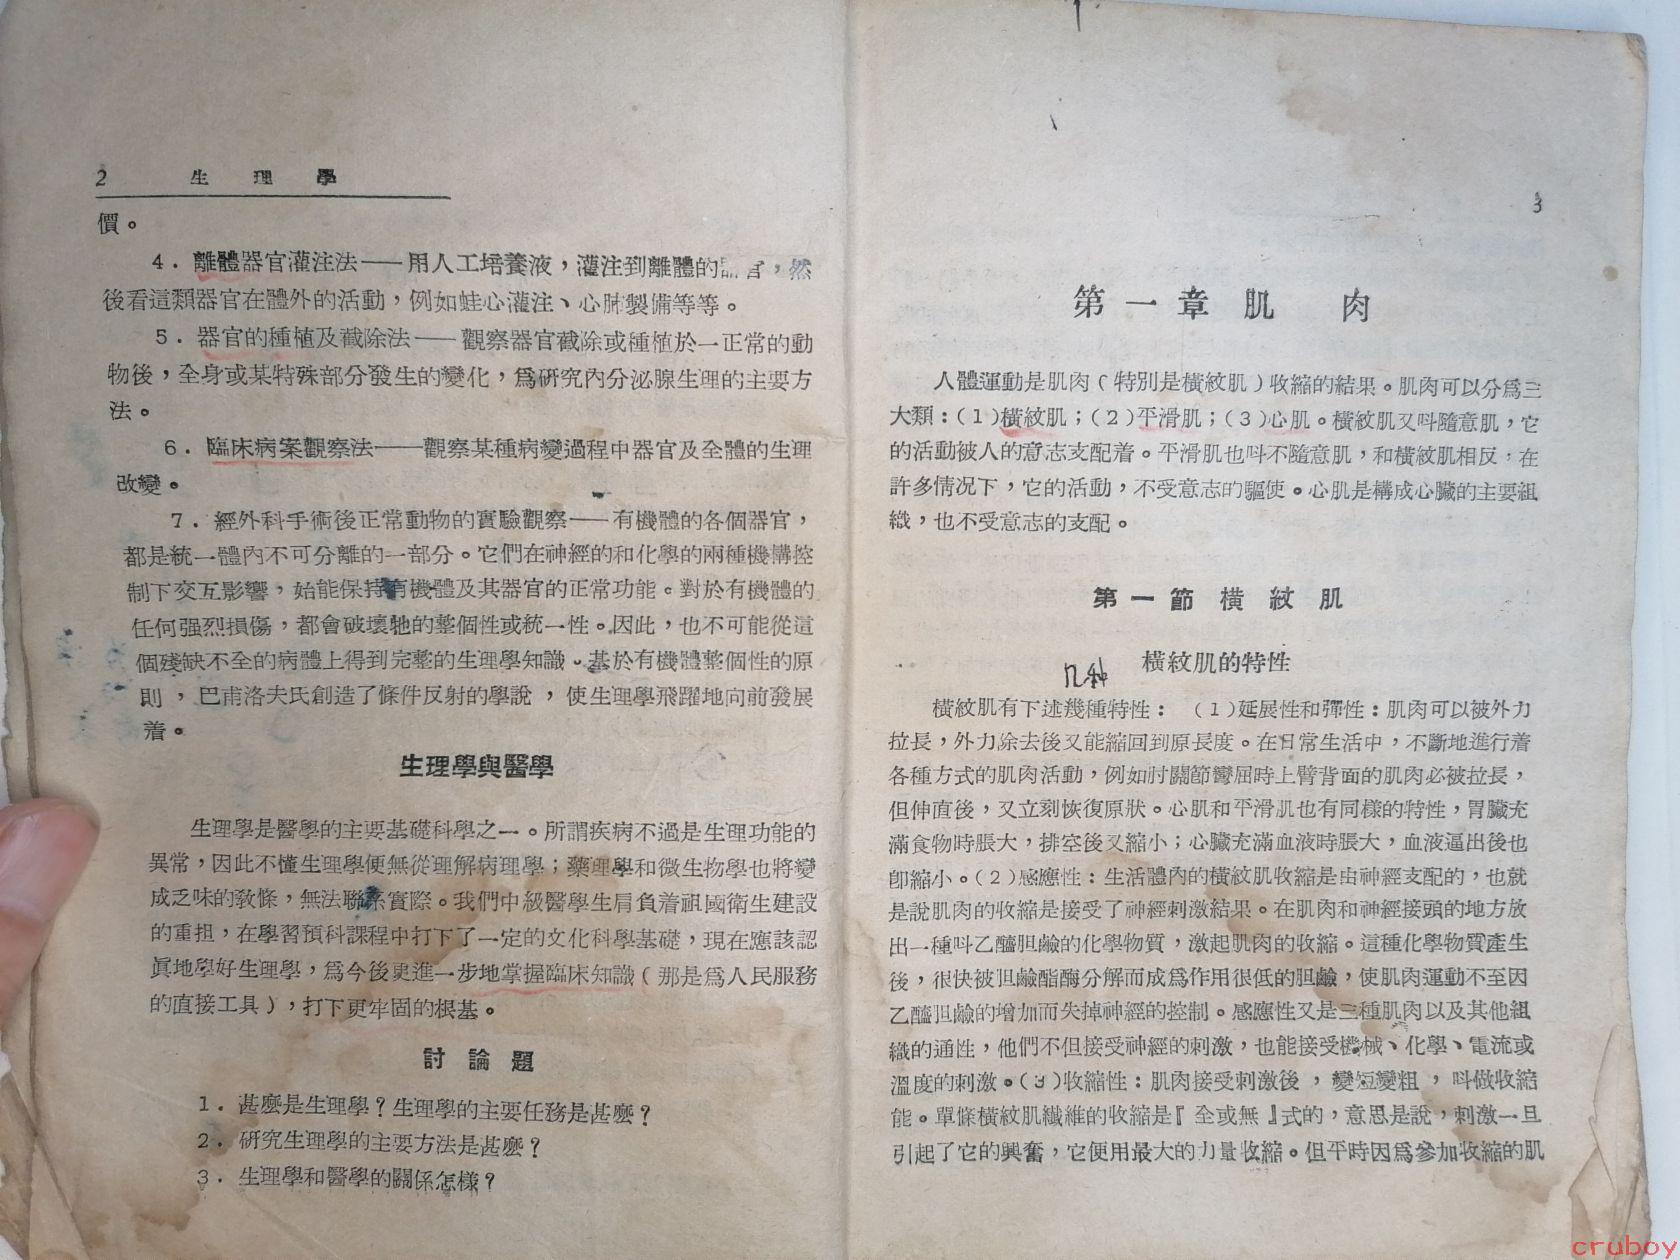 2 生理學
價。
4．離體器官灌注法——用人工培養液，灌注到離體的器官，然
後看這類器官在體外的活動，例如蛙心灌注、心肺製備等等。
5．器官的種植及截除法——觀察器官截除或種植於一正常的動
物後，全身或某特殊部分發生的變化，爲研究內分泌腺生理的主要方
法。
6．臨床病案觀察法——觀察某種病變過程中器官及全體的生理
改變。
7．經外科手術後正常動物的實驗觀察——有機體的各個器官，
都是統一體內不可分離的一部分。它們在神經的和化學的兩種機構控
制下交互影響，始能保持有機體及其器官的正常功能。對於有機體的
任何强烈損傷，都會破壞牠的整個性或統一性。因此，也不可能從這
個殘缺不全的病體上得到完整的生理學知識。基於有機體整個性的原
則，巴甫洛夫氏創造了條件反射的學說，使生理學飛躍地向前發展
着。
生理學與醫學
生理學是醫學的主要基礎科學之一。所謂疾病不過是生理功能的
異常，因此不懂生理學便無從理解病理學；藥理學和微生物學也將變
成乏味的敎條，無法聯系實際。我們中級醫學生肩負着祖國衛生建設
的重担，在學習預科課程中打下了一定的文化科學基礎，現在應該認
眞地學好生理學，爲今後更進一步地掌握臨床知識（那是爲人民服務
的直接工具），打下更牢固的根基。
討論題
1．甚麼是生理學？生理學的主要任務是甚麼？
2．研究生理學的主要方法是甚麼？
3．生理學和醫學的關係怎樣？
3
第一章 肌肉
人體運動是肌肉（特別是橫紋肌）收縮的結果。肌肉可以分爲三
大類：（1）橫紋肌；（2）平滑肌；（3）心肌。橫紋肌又叫隨意肌，它
的活動被人的意志支配着。平滑肌也叫不隨意肌，和橫紋肌相反，在
許多情况下，它的活動，不受意志的驅使。心肌是構成心臟的主要組
織，也不受意志的支配。
第一節 橫紋肌
橫紋肌的特性
几种
橫紋肌有下述幾種特性：（1）延展性和彈性：肌肉可以被外力
拉長，外力除去後又能縮回到原長度。在日常生活中，不斷地進行着
各種方式的肌肉活動，例如肘關節彎屈時上臂背面的肌肉必被拉長，
但伸直後，又立刻恢復原狀。心肌和平滑肌也有同樣的特性，胃臟充
滿食物時脹大，排空後又縮小；心臟充滿血液時脹大，血液逼出後也
卽縮小。（2）感應性：生活體內的橫紋肌收縮是由神經支配的，也就
是說肌肉的收縮是接受了神經刺激結果。在肌肉和神經接頭的地方放
出一種叫乙醯胆鹼的化學物質，激起肌肉的收縮。這種化學物質產生
後，很快被胆鹼酯酶分解而成爲作用很低的胆鹼，使肌肉運動不至因
乙醯胆鹼的增加而失掉神經的控制。感應性又是三種肌肉以及其他組
織的通性，他們不但接受神經的刺激，也能接受機械、化學、電流或
溫度的刺激。（3）收縮性：肌肉接受刺激後，變短變粗，叫做收縮
能。單條橫紋肌纖維的收縮是『全或無』式的，意思是說，刺激一旦
引起了它的興奮，它便用最大的力量收縮。但平時因爲參加收縮的肌
cruboy